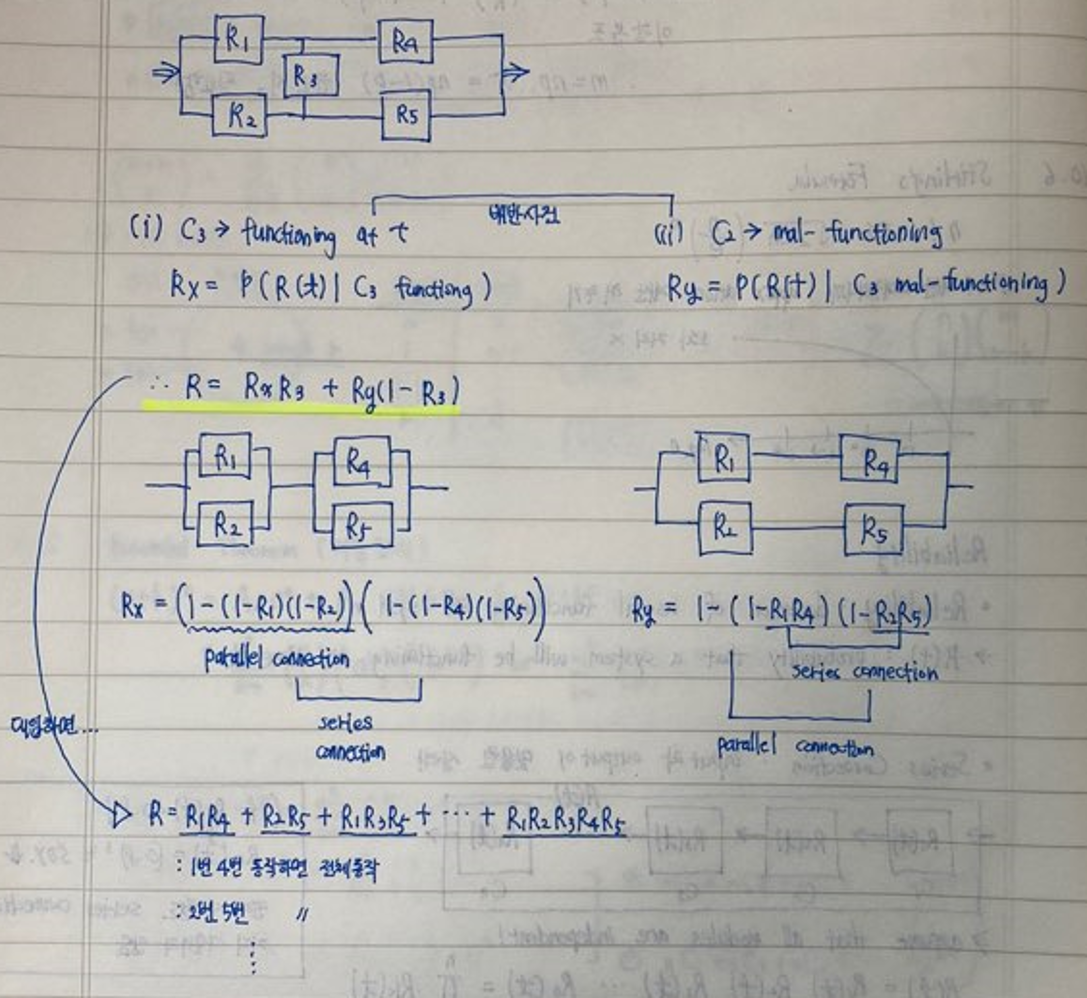 R1 R4
R3
R2 R5
배반사건
(i) C3 → functioning at t
(ii) C2 → mal-functioning
Rx = P(R(t) | C3 functiong)
Ry = P(R(t) | C3 mal-functioning)
∴ R = RxR3 + Ry(1-R3)
R1 R4
R2 R5
R1 R4
R2 R5
Rx = (1-(1-R1)(1-R2))(1-(1-R4)(1-R5))
parallel connection
series
connection
Ry = 1-(1-R1R4)(1-R2R5)
series connection
parallel connection
대입하면...
R = R1R4 + R2R5 + R1R3R5 + ··· + R1R2R3R4R5
: 1번 4번 동작하면 전체동작
: 2번 5번 〃
⋮